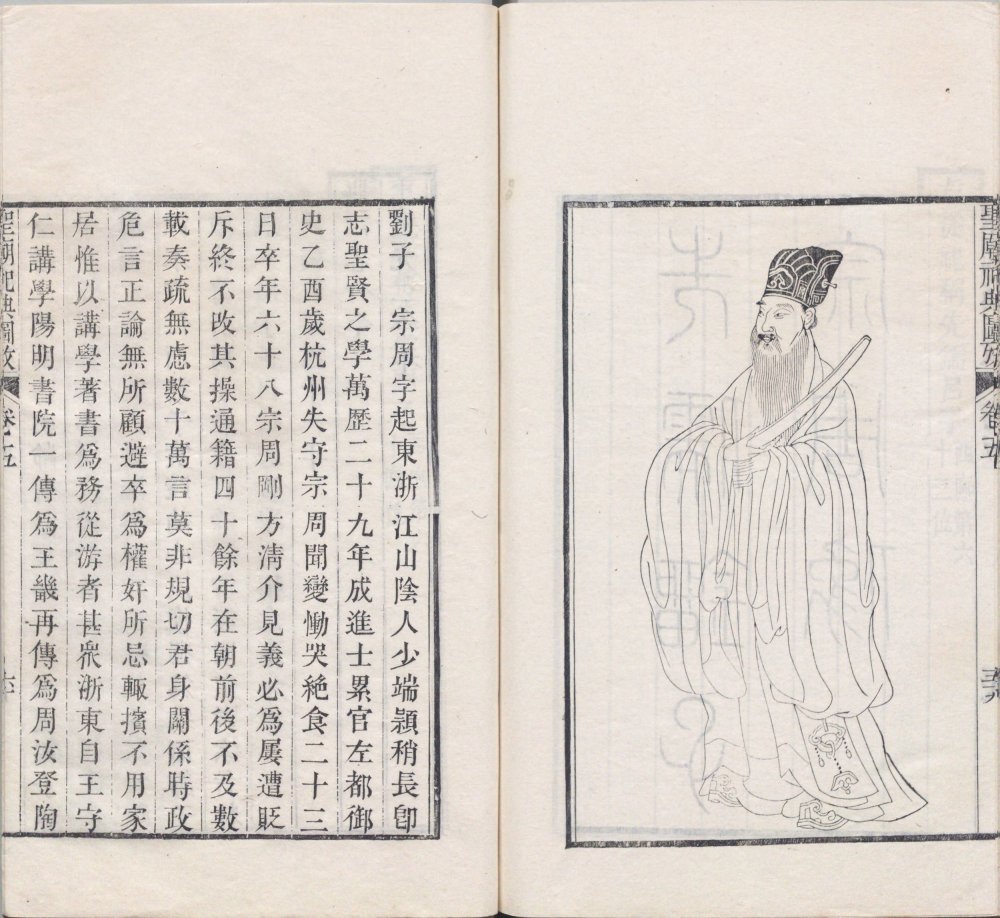 聖廟祀典圖攷 卷五
劉子 宗周字起東浙江山陰人少端穎稍長卽
志聖賢之學萬歷二十九年成進士累官左都御
史乙酉歲杭州失守宗周聞變慟哭絶食二十三
日卒年六十八宗周剛方淸介見義必爲屢遭貶
斥終不改其操通籍四十餘年在朝前後不及數
載奏疏無慮數十萬言莫非規切君身關係時政
危言正論無所顧避卒爲權奸所忌輙擯不用家
居惟以講學著書爲務從游者甚衆浙東自王守
仁講學陽明書院一傳爲王畿再傳爲周汝登陶
聖廟祀典圖攷 卷五